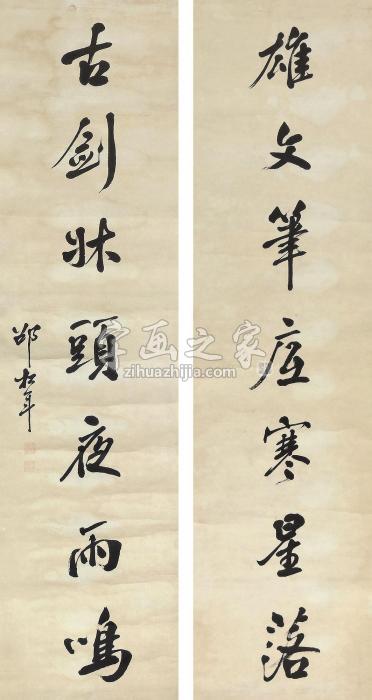 雄文筆底寒星落
古劍牀頭夜雨鳴
邵松年
字画之家
zihuazhijia.com